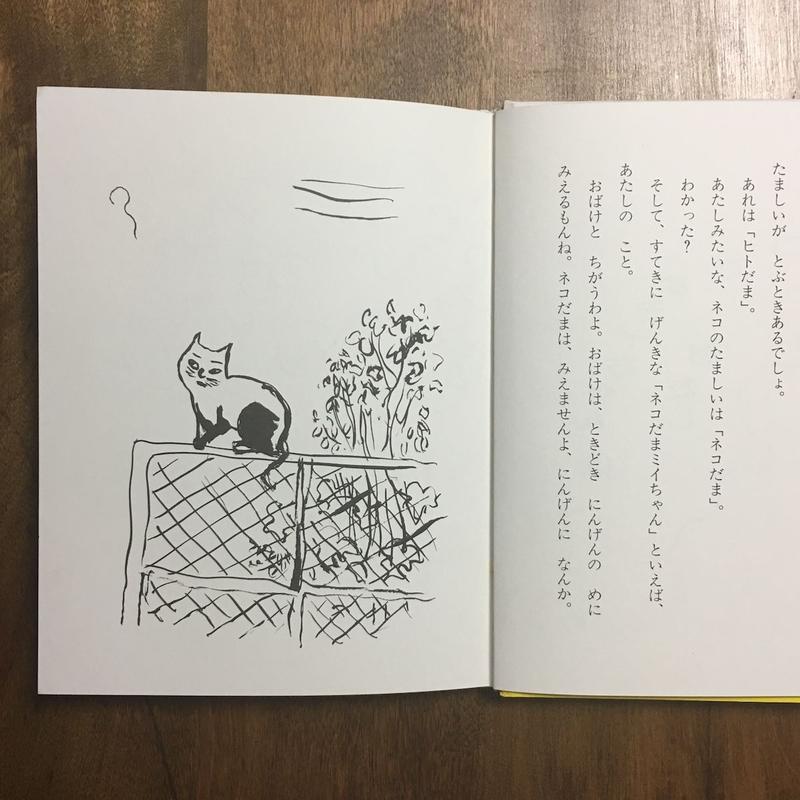 たましいが　とぶときあるでしょ。
あれは「ヒトだま」。
あたしみたいな、ネコのたましいは「ネコだま」。
わかった？
そして、すてきに　げんきな「ネコだまミイちゃん」といえば、
あたしの　こと。
おばけと　ちがうわよ。おばけは、ときどき　にんげんの　めに
みえるもんね。ネコだまは、みえませんよ、にんげんに　なんか。